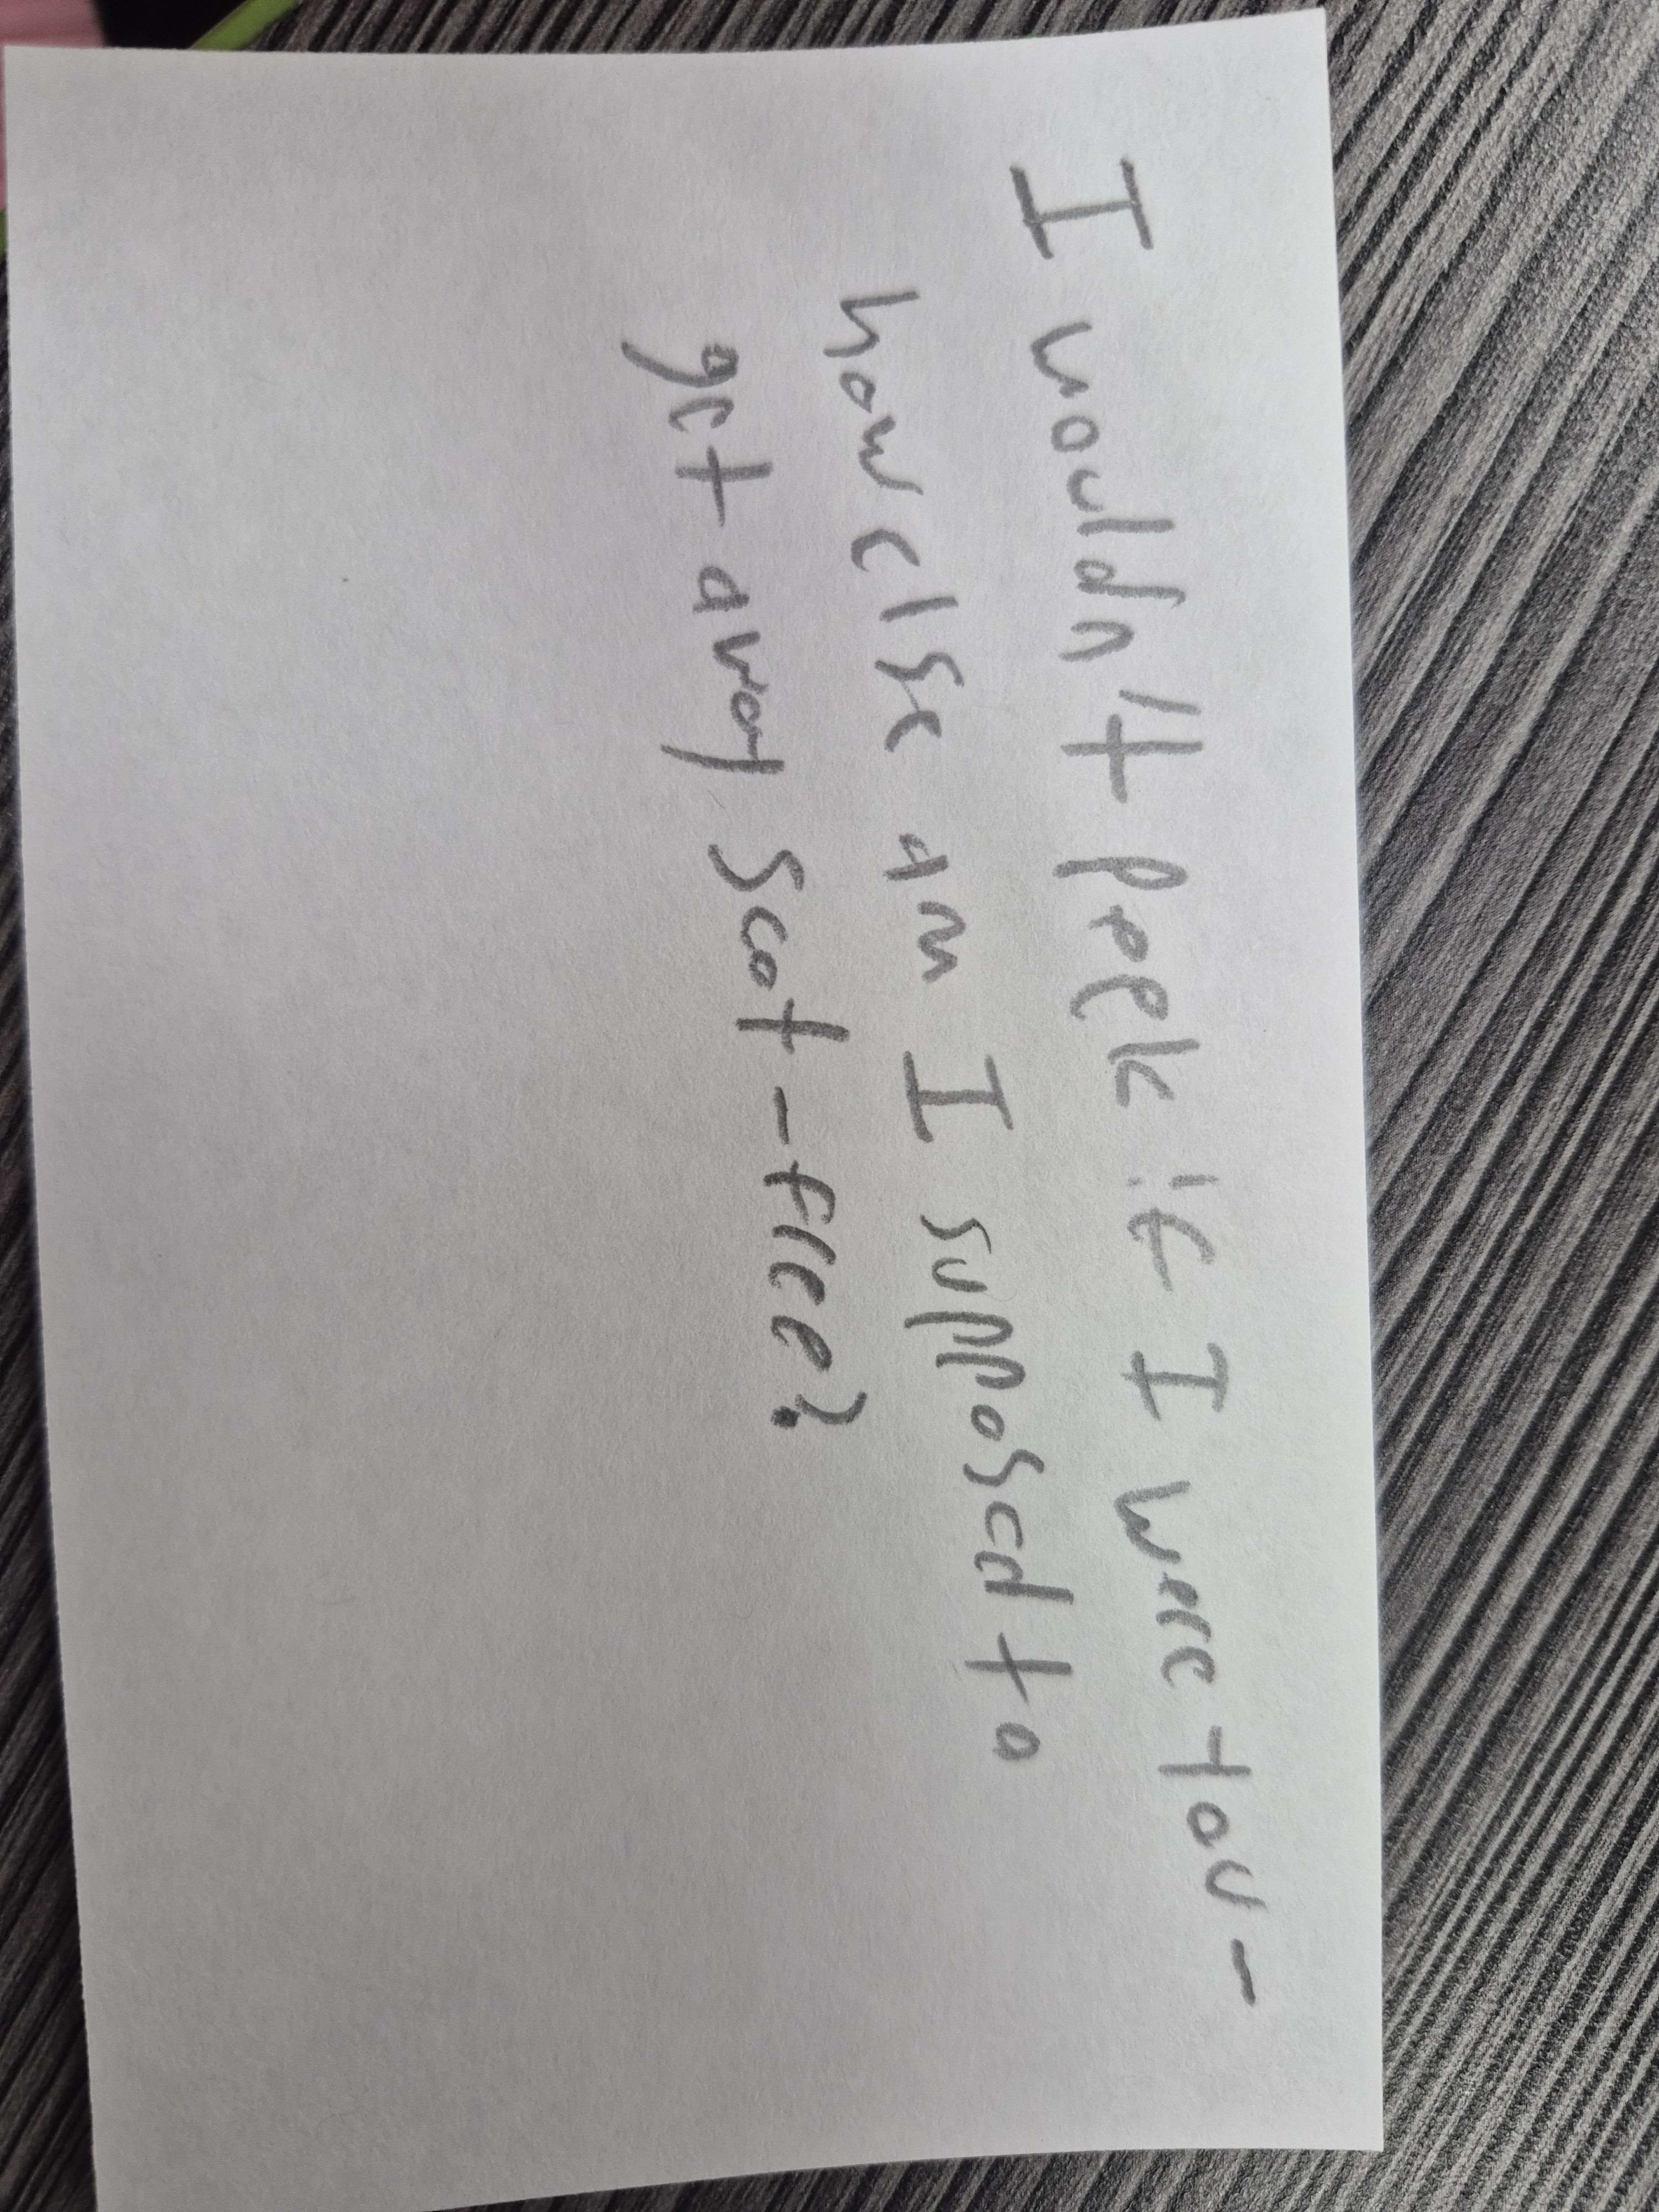 I wouldn't peek if I were you -
how else am I supposed to
get away scot-free?